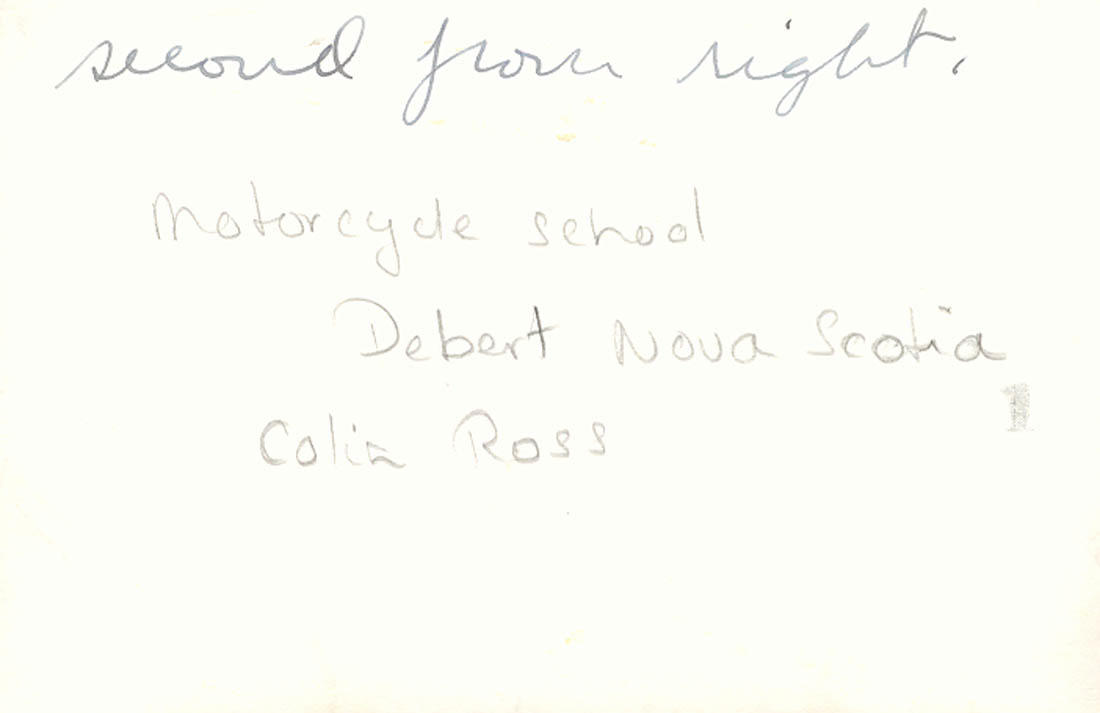 second from right.
Motorcycle school
Debert Nova Scotia
1
Colin Ross